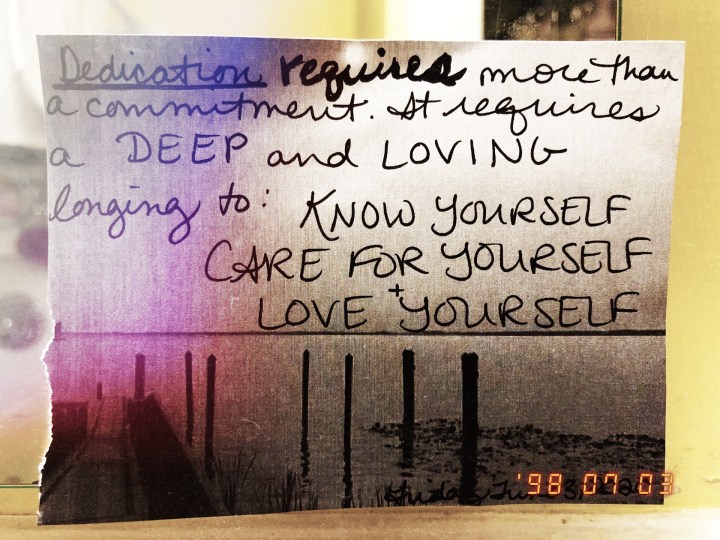 Dedication requires more than
a commitment. It requires
a DEEP and LOVING
longing to: KNOW YOURSELF
CARE FOR YOURSELF
LOVE + YOURSELF
Friday
'98 07 03